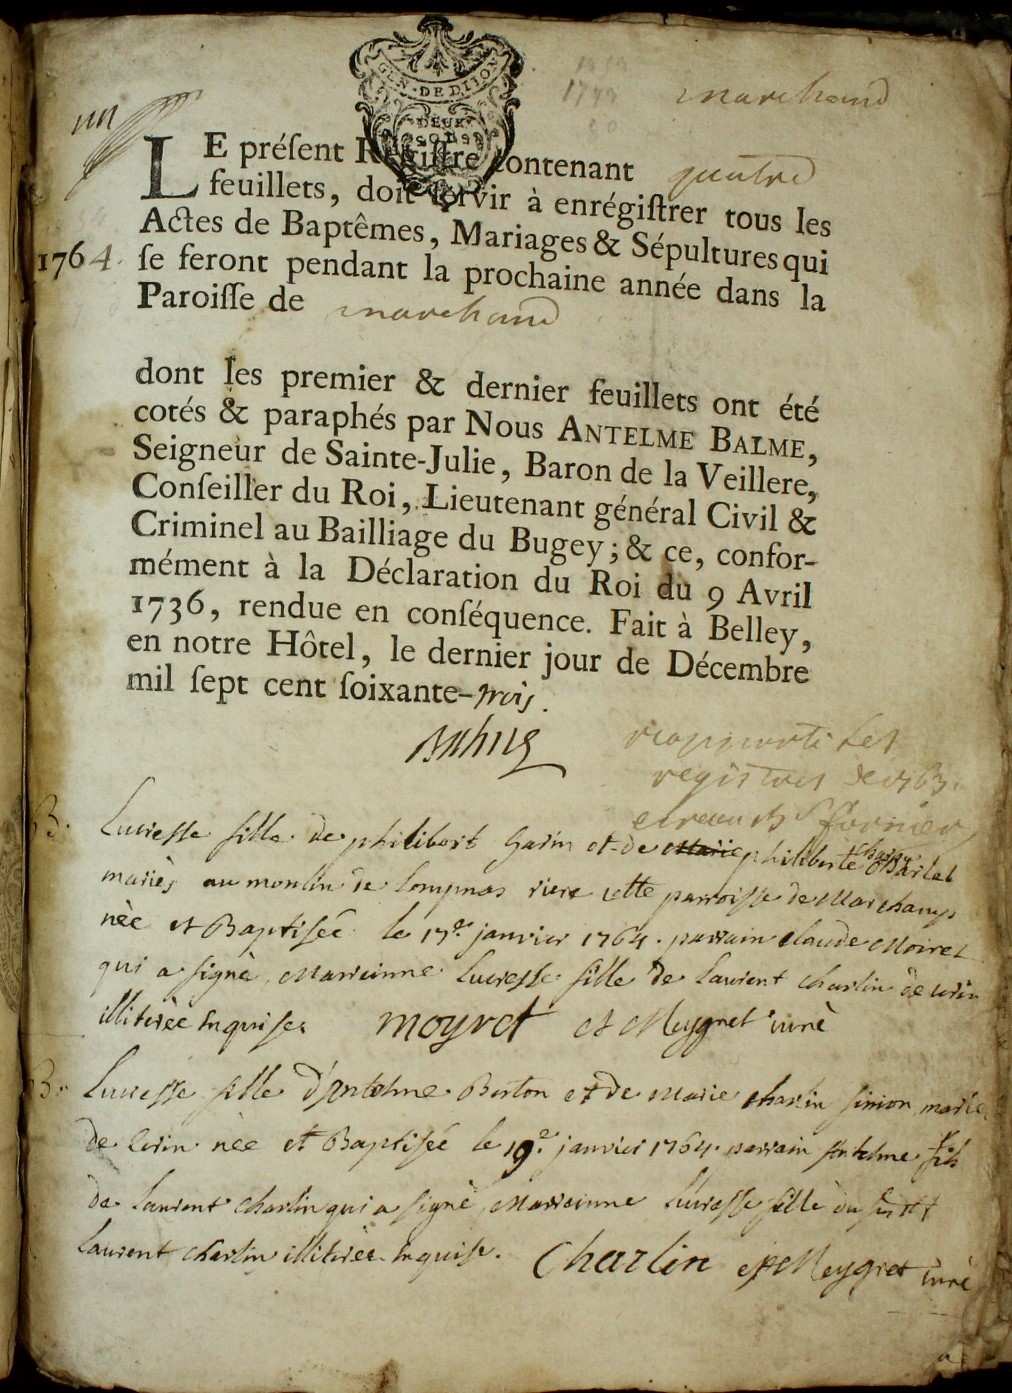 GEN. DE DIJON
DEUX
SOLS
marchand
un
LE préſent Regiſtre contenant quatre
feuillets, doit ſervir à enrégiſtrer tous les
Actes de Baptêmes, Mariages & Sépultures qui
1764. ſe feront pendant la prochaine année dans la
Paroiſſe de marchand
dont les premier & dernier feuillets ont été
cotés & paraphés par Nous ANTELME BALME,
Seigneur de Sainte-Julie, Baron de la Veillere,
Conſeiller du Roi, Lieutenant général Civil &
Criminel au Bailliage du Bugey; & ce, confor-
mément à la Déclaration du Roi du 9 Avril
1736, rendue en conſéquence. Fait à Belley,
en notre Hôtel, le dernier jour de Décembre
mil ſept cent ſoixante-trois.
rapporté les
registres de 1763.
B. Lucresse fille de philibert Garin et de philiberte
mariés au moulin de Lompnas riere cette parroisse de Marchamp
née et Baptisée le 17e. janvier 1764. parrain Claude Moiret
qui a signé, Marrainne Lucresse fille de Laurent Charlin de
illitérée Enquise. moyret et Meygret curé
B. Lucresse fille d'Antelme Berton et de Marie Charlin mariés
de née et Baptisée le 19e. janvier 1764. parrain Antelme fils
de Laurent Charlin qui a signé, Marrainne Lucresse fille du
Laurent Charlin illitérée Enquise. Charlin et Meygret curé